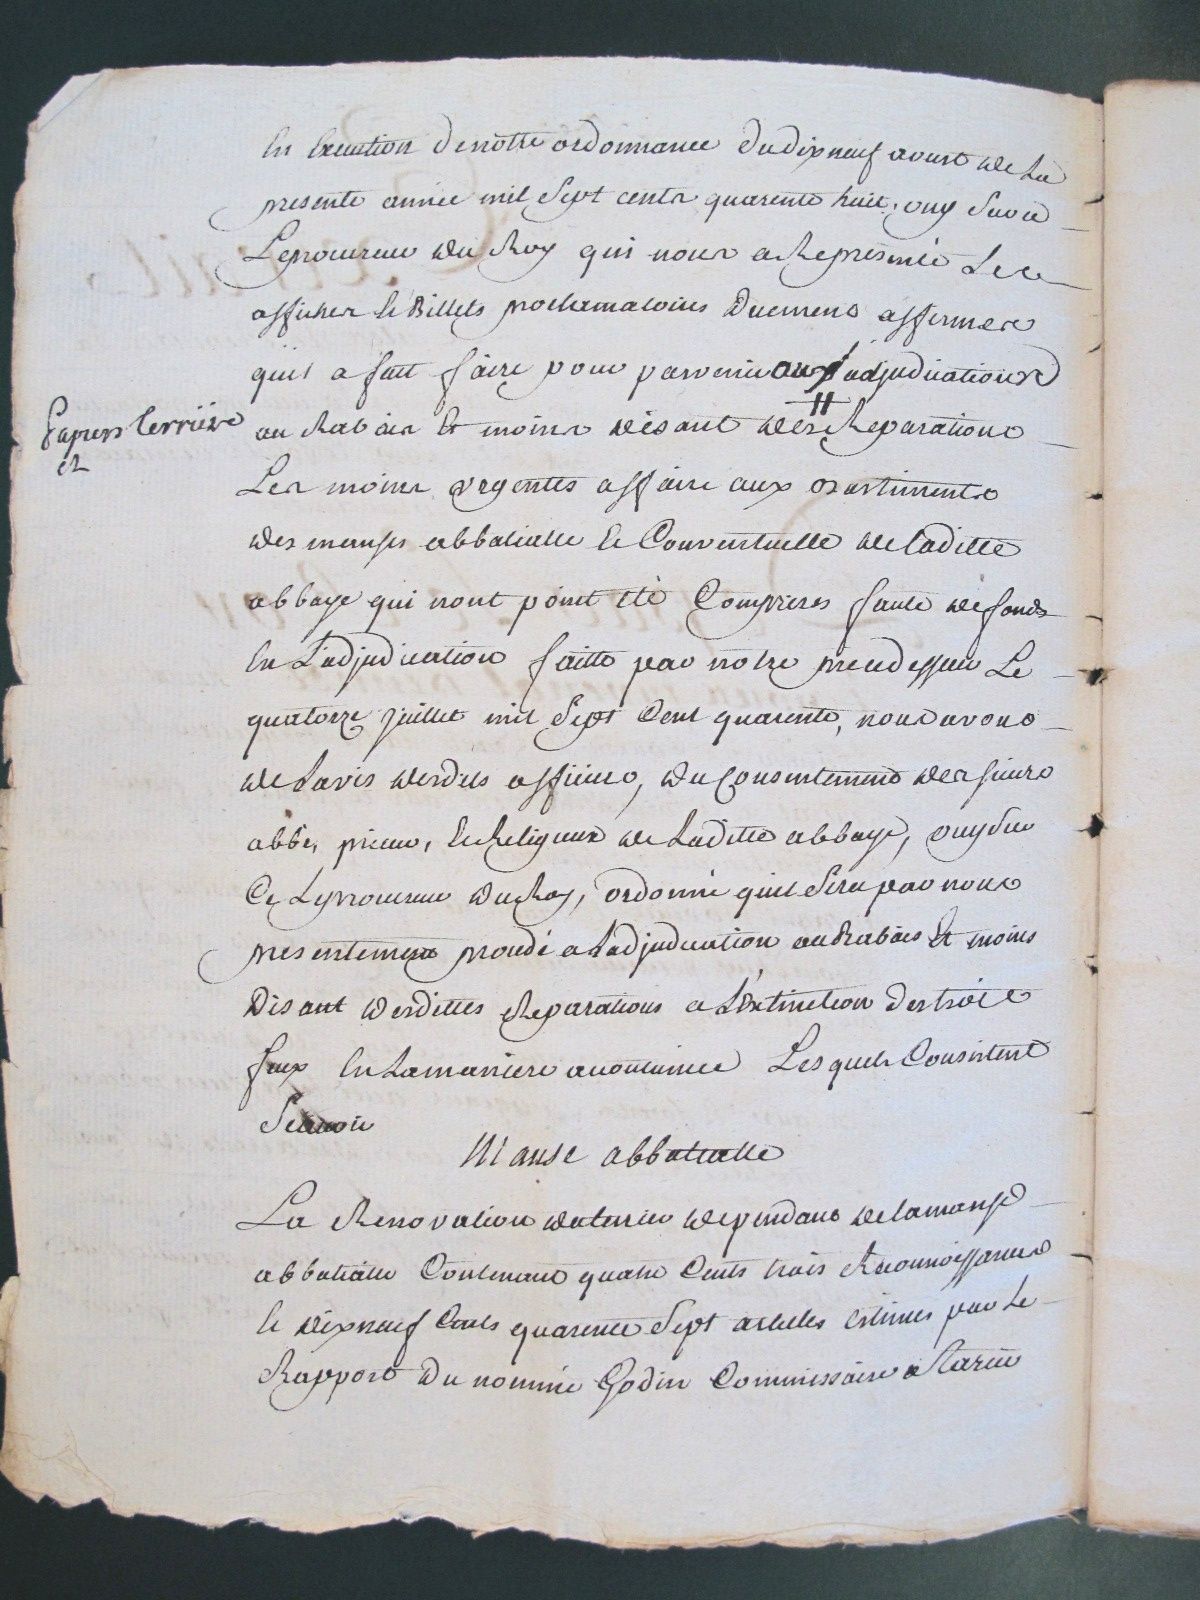 En Execution de notre ordonnance du dix neuf aoust de la
presente année mil Sept cents quarente huit, ouy Sur ce
Le procureur du Roy qui nous a Representé Les
affiches et Billets proclamatoires duement affermees
quil a fait faire pour parvenir aux adjudications
au Rabais Et moins disant des Reparations
papiers terriers
et
Les moins urgentes affaire aux
des manses abbatialle et Conventuelle de laditte
abbaye qui nont point été Comprises faute de fonds
En L'adjudication faitte par notre predessseur Le
quatorze juillet mil Sept Cent quarente, nous avons
de Lavis desdits officiers, du Consentement des sieurs
abbé, prieur, et Religieux de Laditte abbaye, ouy Sur
Ce Le procureur du Roy, ordonné quil Sera par nous
presentement procedé a Ladjudication au Rabais Et moins
Disant desdittes Reparations a L'Extinction des trois
feux En La maniere accoutumée Lesquels Consistent
Scavoir
Manse abbatialle
La Renovation du terrier dependant de la manse
abbatialle Contenant quatre Cents trois Reconnoissances
et dixneuf Cents quarente Sept articles Estimés par Le
Rapport Du nommé Godin Commissaire a